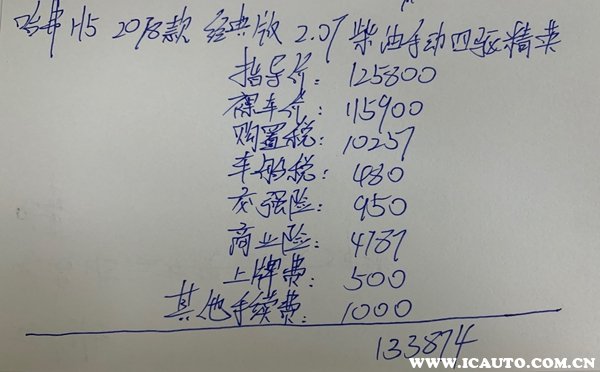 哈弗H5 2018款 经典版 2.0T柴油手动四驱精英
指导价：125800
裸车价：115900
购置税：10257
车船税：480
交强险：950
商业险：4787
上牌费：500
其他手续费：1000
133874
WWW.ICAUTO.COM.CN